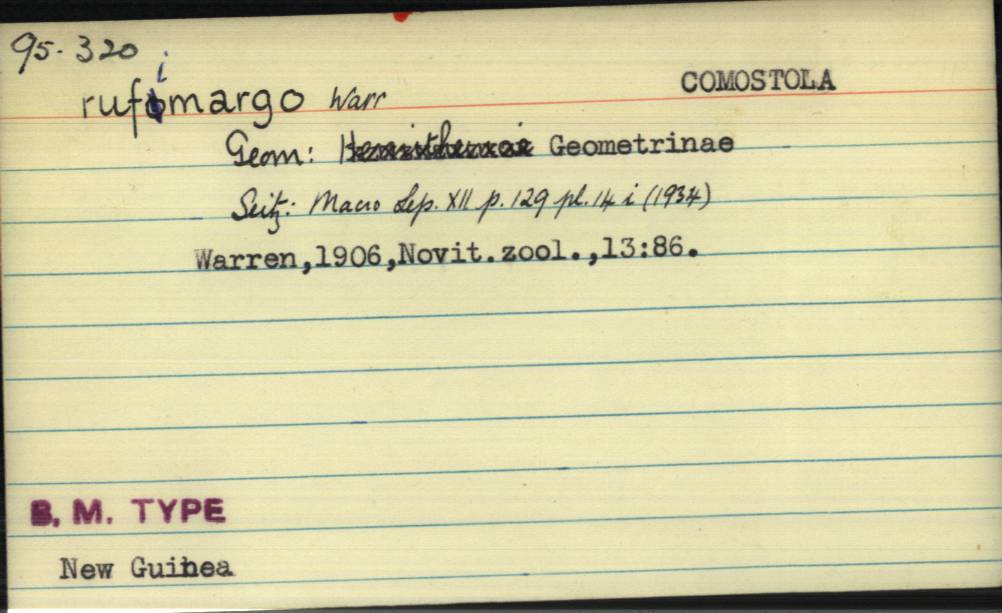 95. 320
rufimargo Warr COMOSTOLA
Geom: Geometrinae
Seitz: Macro Lep. XII p. 129 pl. 14 i (1934)
Warren,1906,Novit.zool.,13:86.
B. M. TYPE
New Guinea